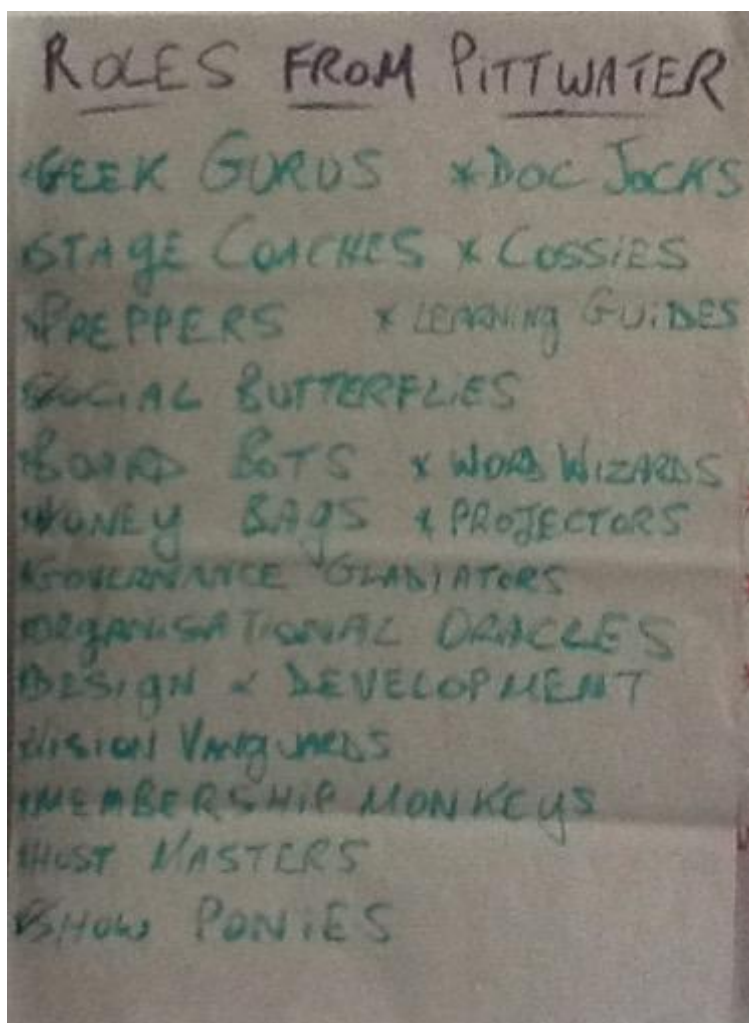 ROLES FROM PITTWATER
*GEEK GURUS *DOC JOCKS
*STAGE COACHES * COSSIES
*PREPPERS * LEARNING GUIDES
*SOCIAL BUTTERFLIES
*BOARD BOTS * WORD WIZARDS
*MONEY BAGS * PROJECTORS
*GOVERNANCE GLADIATORS
*ORGANISATIONAL ORACLES
*DESIGN & DEVELOPMENT
*VISION VANGUARDS
*MEMBERSHIP MONKEYS
*HOST MASTERS
*SHOW PONIES